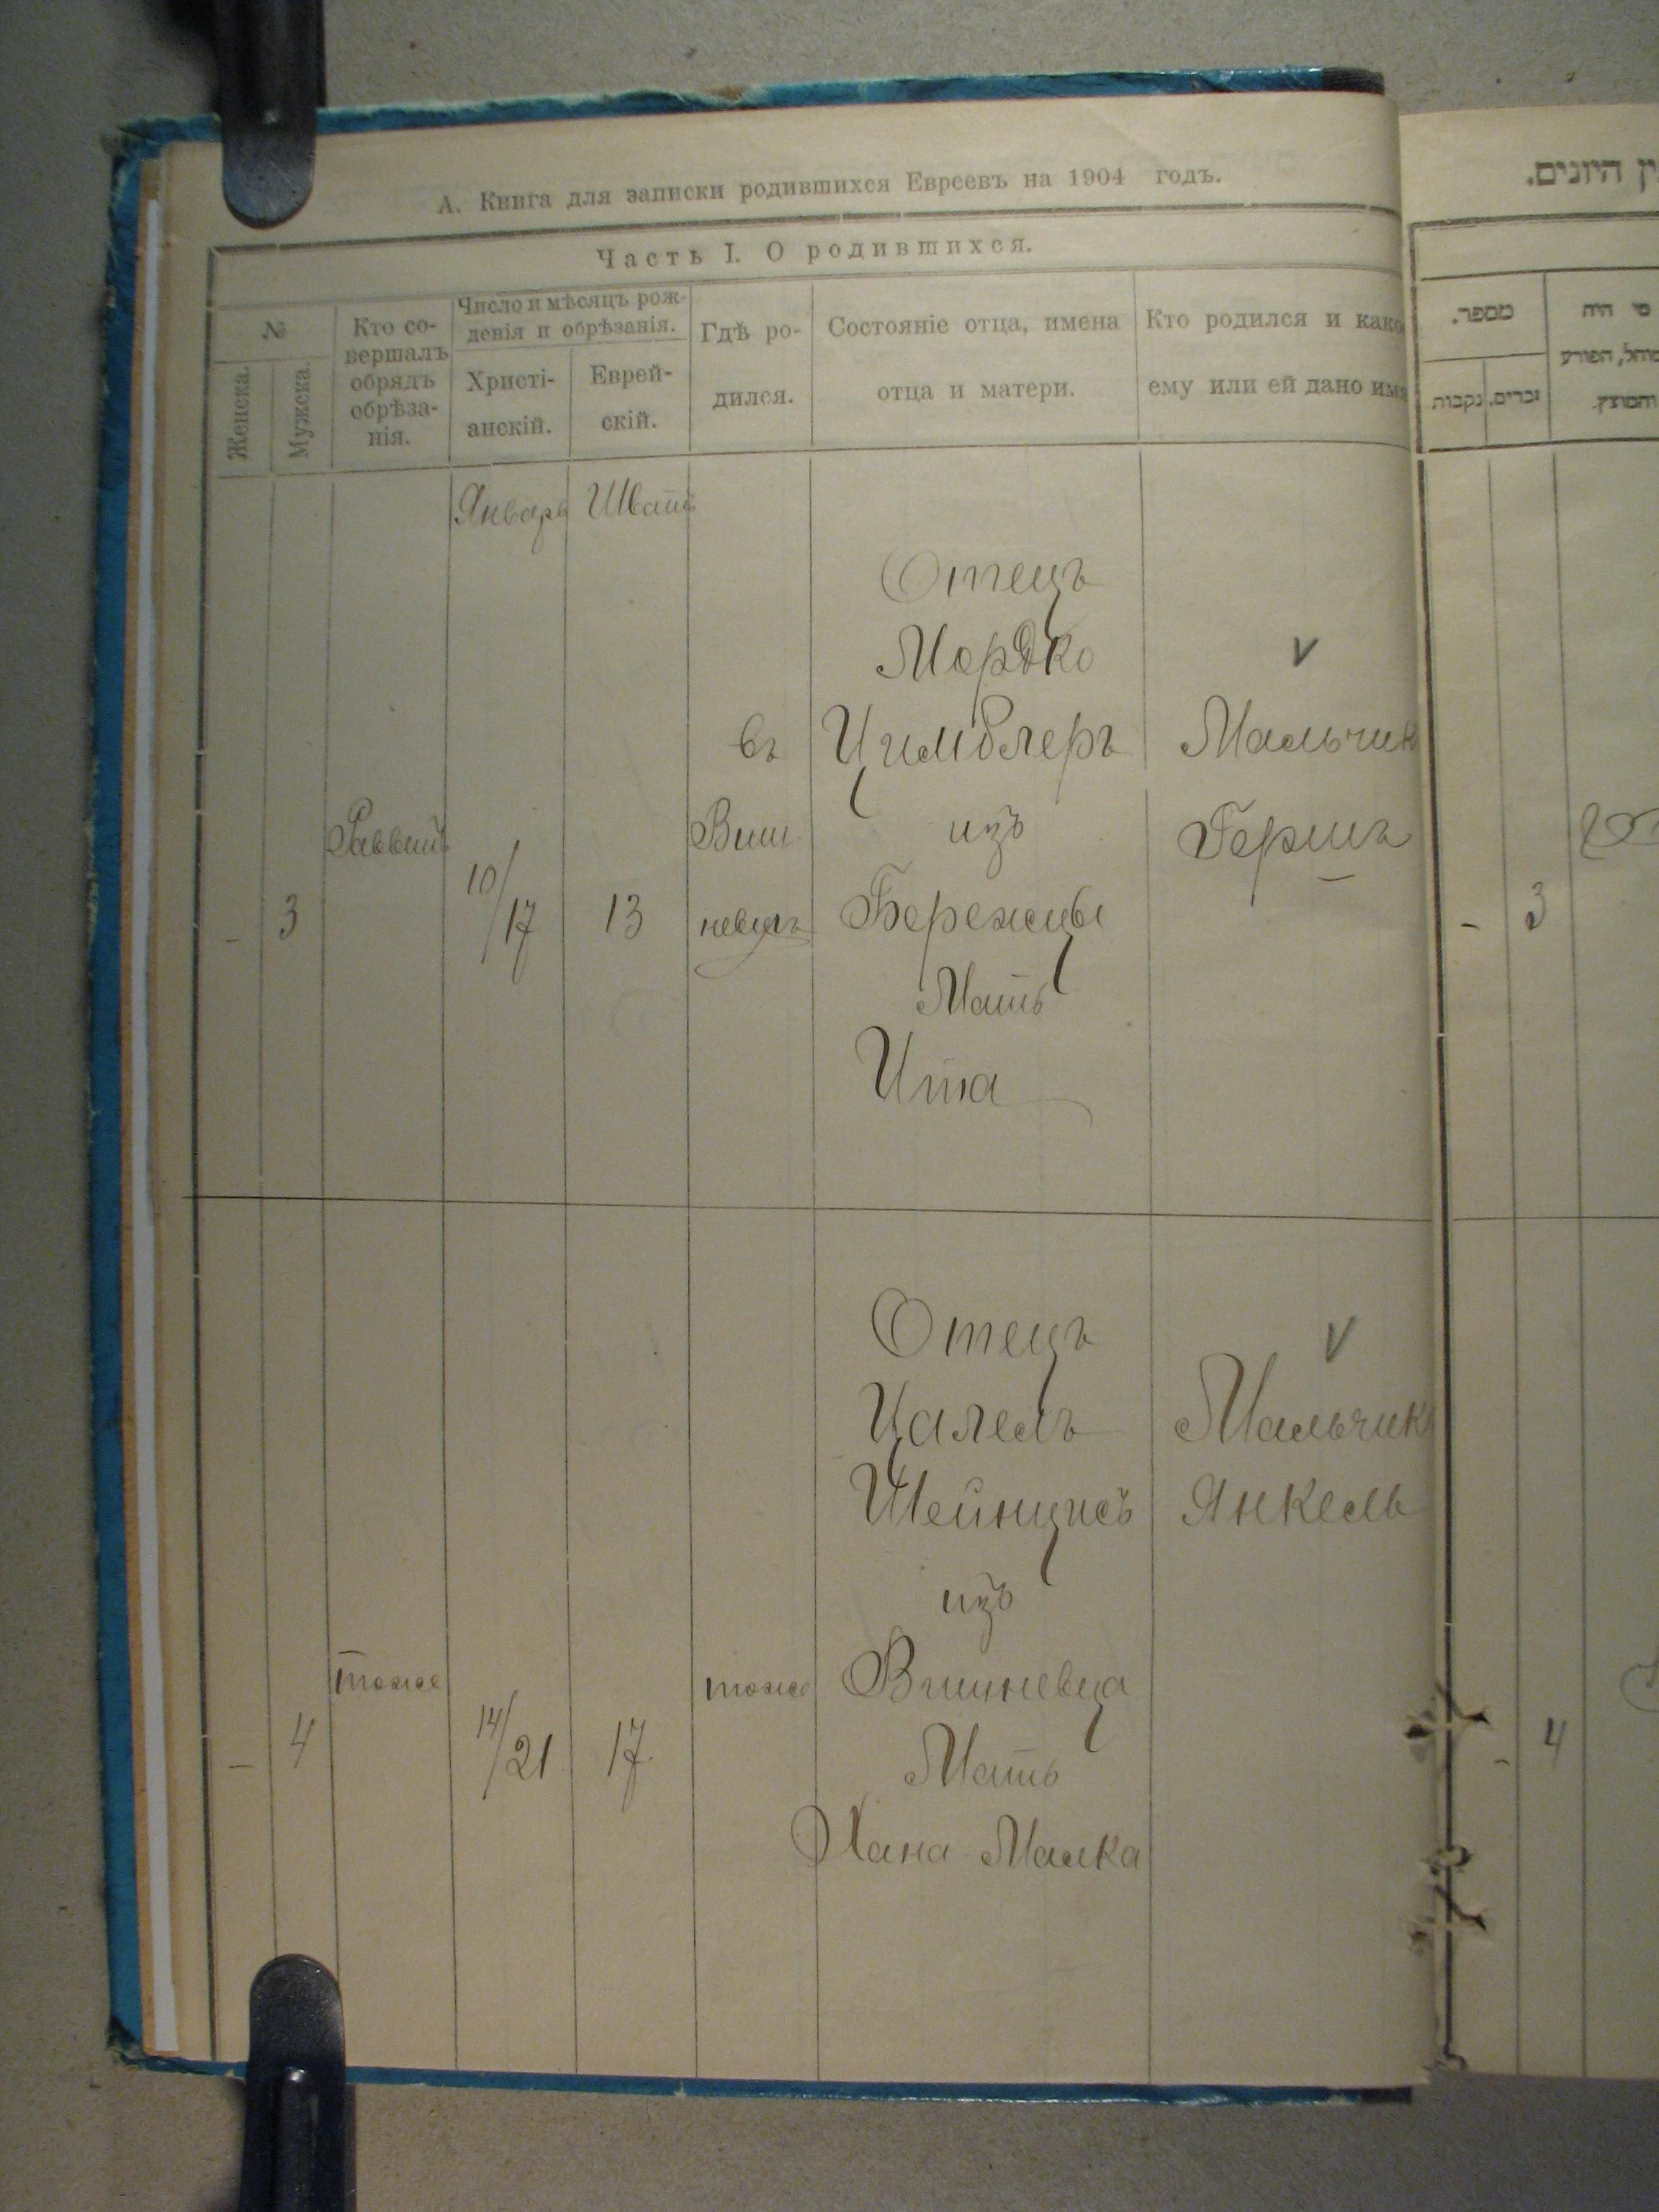 А. Книга для записки родившихся Евреевъ на 1904 годъ.
Часть I. О родившихся.
№
Женска.
Мужска.
Кто со-
вершалъ
обрядъ
обрѣза-
нія.
Число и мѣсяцъ рож-
денія и обрѣзанія.
Христі-
анскій.
Еврей-
скій.
Гдѣ ро-
дился.
Состояніе отца, имена
отца и матери.
Кто родился и како
ему или ей дано имя
Январь Шватъ
- 3
Раввинъ
10/17
13
въ
Виш-
невцѣ
Отецъ
Мордко
Цимблеръ
изъ
Бережцы
Мать
Ита
V
Мальчикъ
Гершъ
- 4
тоже
14/21
17
тоже
Отецъ
Цалель
Шейнцисъ
изъ
Вишневца
Мать
Хана Малка
V
Мальчикъ
Янкель
ין היונים.
מספר.
זכרים.
נקבות.
מי היה
מוהל, הפורע
והמוצץ.
- 3
- 4